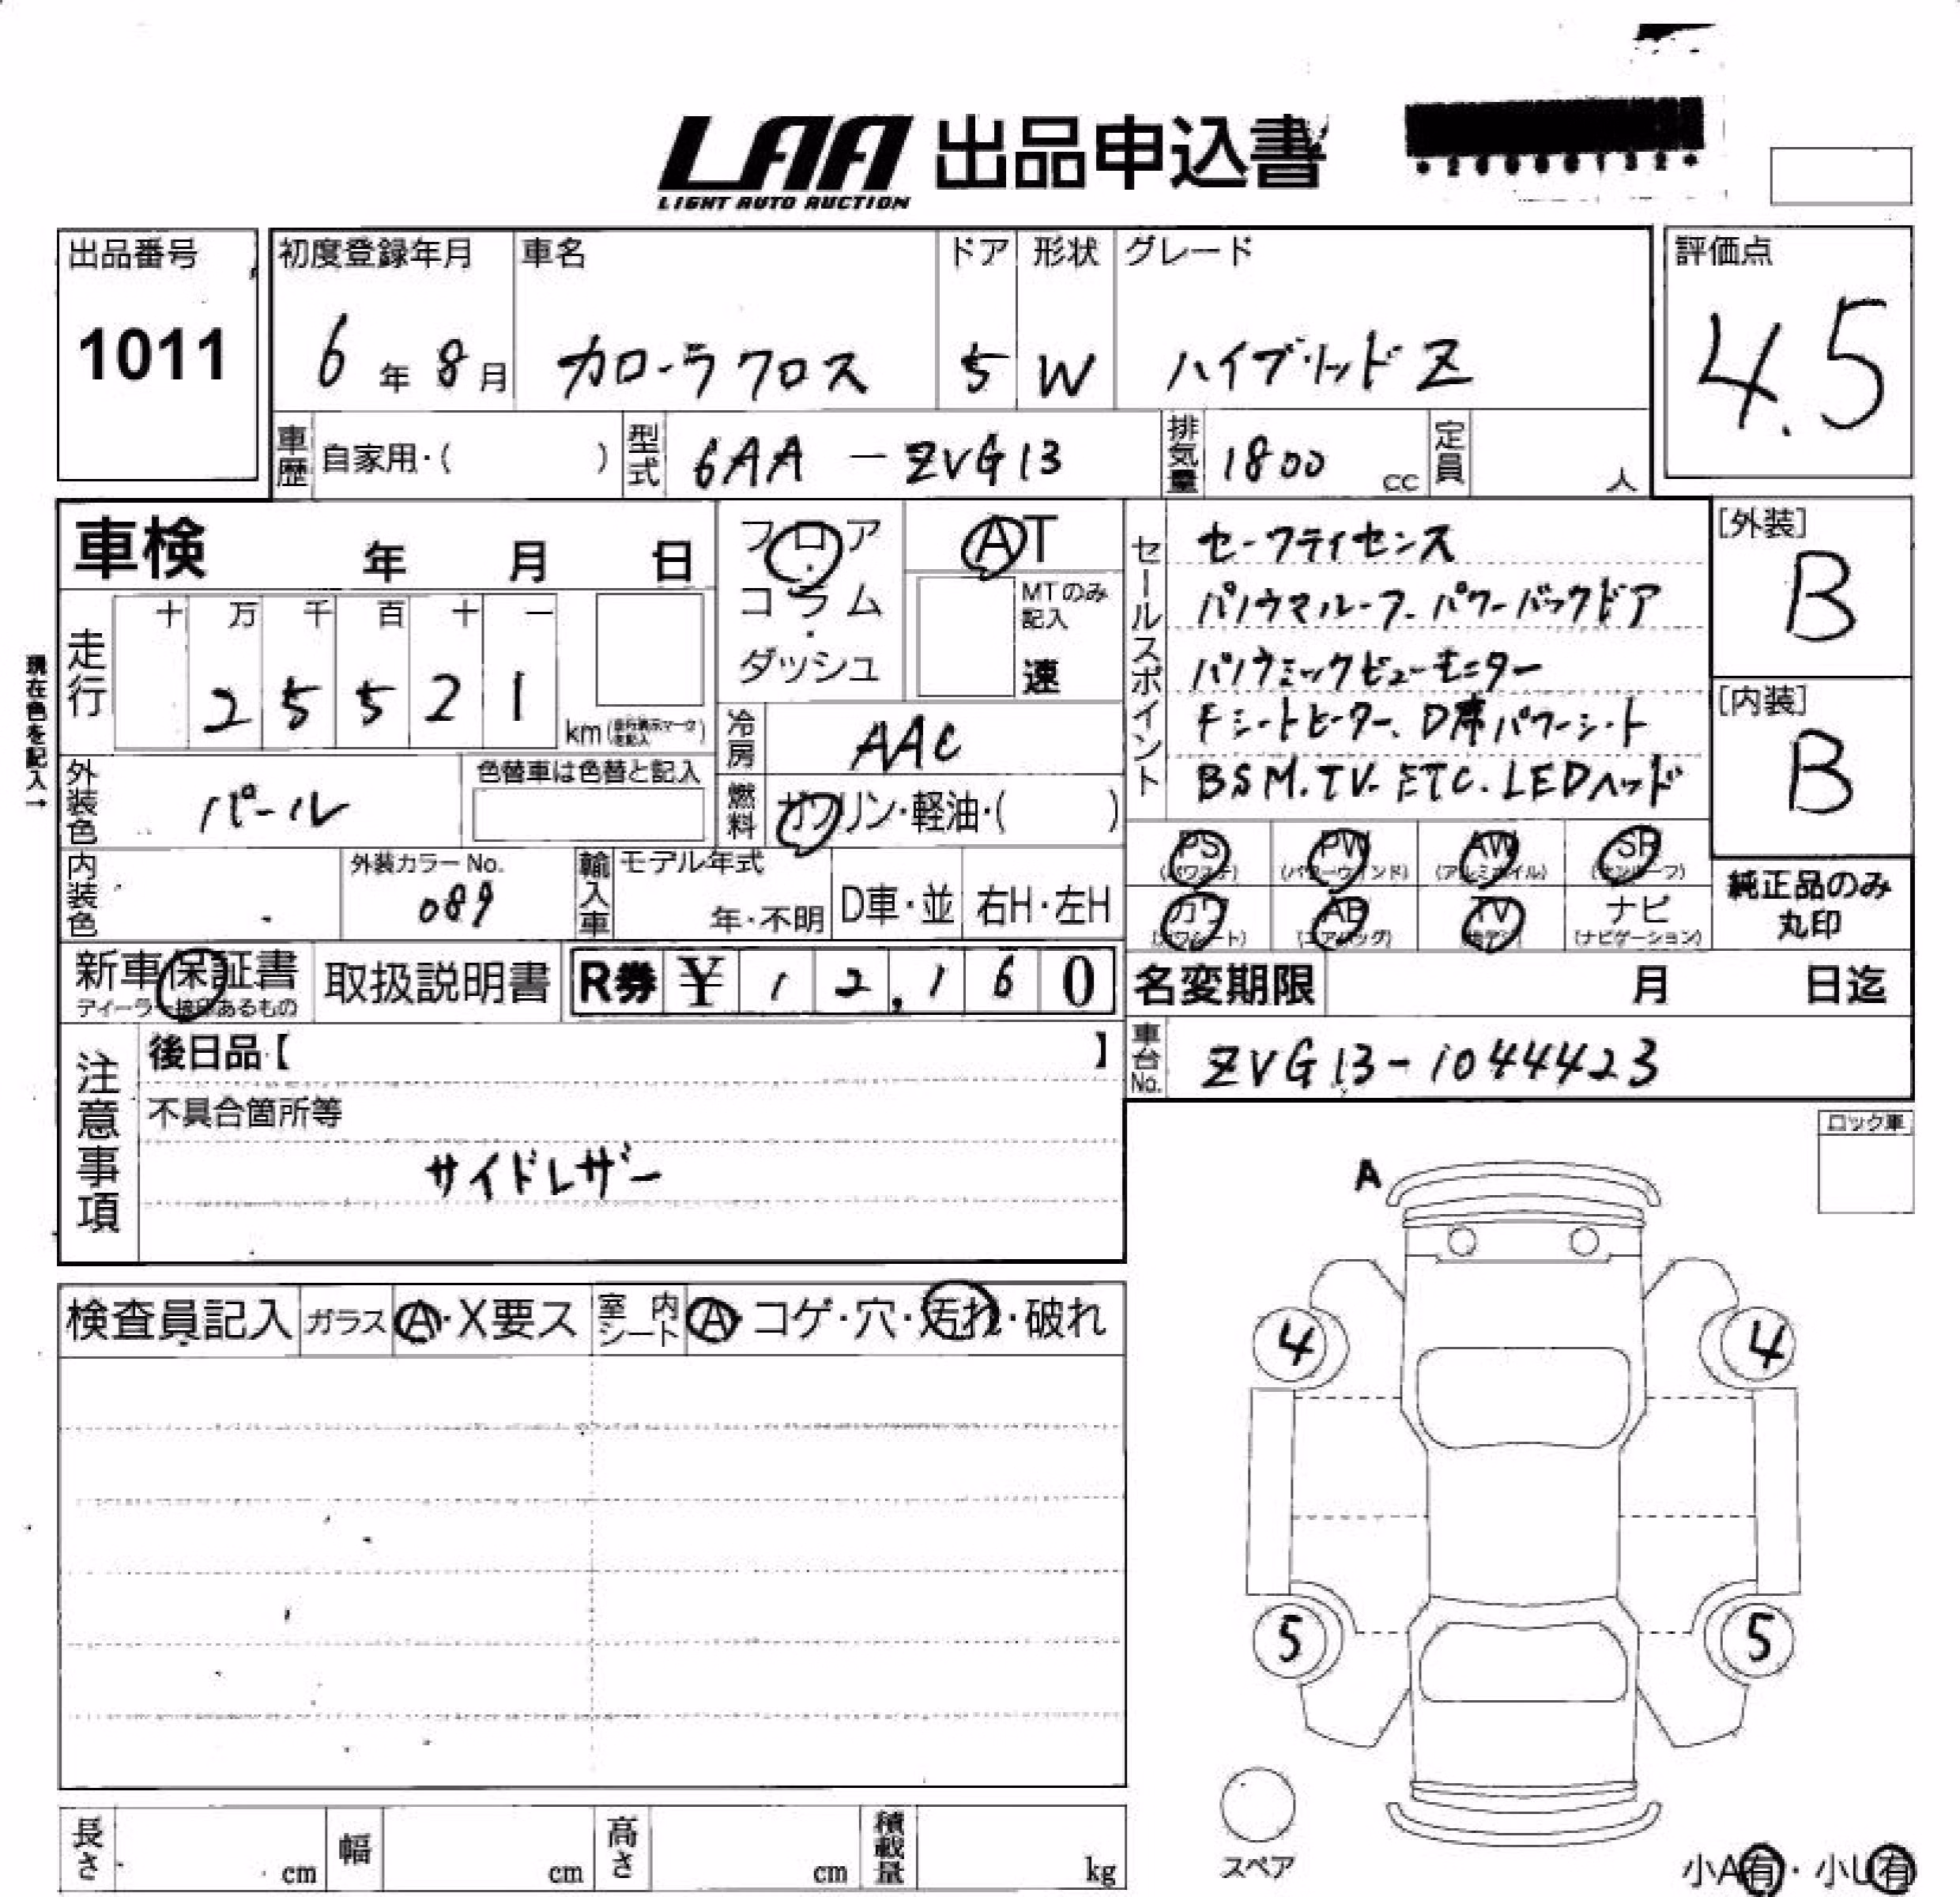 LAA 出品申込書
LIGHT AUTO AUCTION
出品番号
1011
初度登録年月
6年8月
車名
カローラクロス
ドア
5
形状
W
グレード
ハイブリッドZ
評価点
4.5
車歴
自家用・( )
型式
6AA-ZVG13
排気量
1800 cc
定員
人
車検 年 月 日
フロア・コラム・ダッシュ
AT
MTのみ記入
速
セールスポイント
セーフティセンス
パノラマルーフ.パワーバックドア
パノラミックビューモニター
Fシートヒーター、D席パワーシート
BSM.TV.ETC.LEDヘッド
[外装]
B
[内装]
B
現在色を記入→
走行
十 万 千 百 十 一
2 5 5 2 1
km
冷房
AAC
燃料
ガソリン・軽油・( )
外装色
パール
色替車は色替と記入
内装色
外装カラーNo.
089
輸入車
モデル年式
年・不明
D車・並
右H・左H
PS PW AW SR
(パワステ) (パワーウインド) (アルミホイル) (サンルーフ)
カワ AB TV ナビ
(エアバッグ) (ナビゲーション)
純正品のみ
丸印
新車保証書
ディーラー捺印あるもの
取扱説明書
R券 ¥12,160
名変期限 月 日迄
車台No.
ZVG13-1044423
注意事項
後日品【 】
不具合箇所等
サイドレザー
ロック車
A
検査員記入
ガラス
A・X要ス
室内シート
A・コゲ・穴・汚れ・破れ
4
4
5
5
スペア
長さ cm
幅 cm
高さ cm
積載量 kg
小A有・小U有